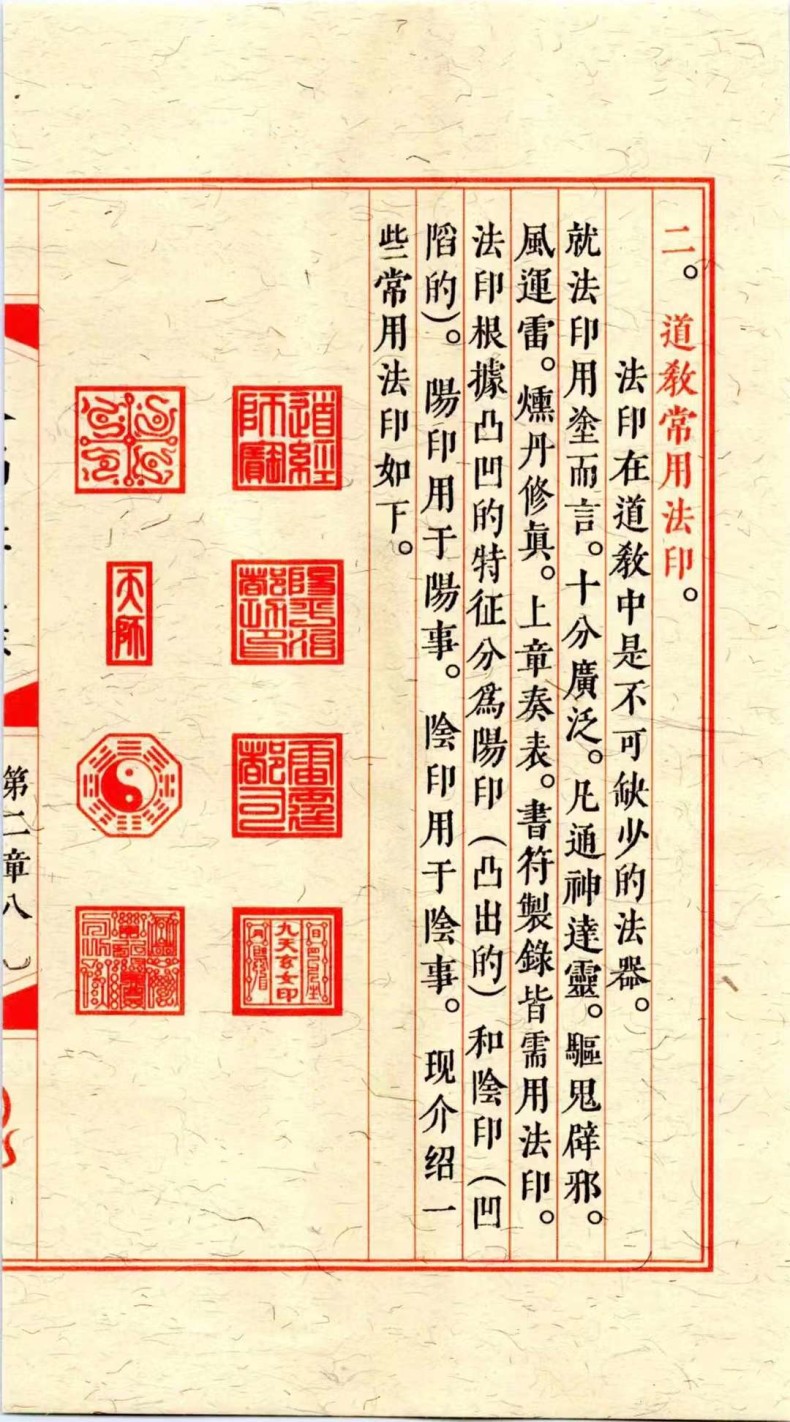 二。道教常用法印。
法印在道教中是不可缺少的法器。
就法印用塗而言。十分廣泛。凡通神達靈。驅鬼辟邪。
風運雷。燻丹修真。上章奏表。書符製錄皆需用法印。
法印根據凸凹的特征分爲陽印（凸出的）和陰印（凹
陷的）。陽印用于陽事。陰印用于陰事。现介绍一
些常用法印如下。
道經師寶
陽平治都功印
雷霆都司
九天玄女印
天師
第二章八